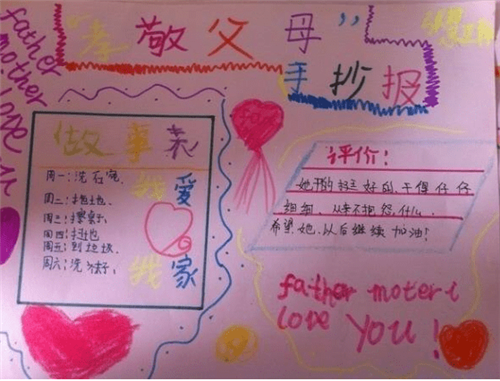 "孝敬父母"
手抄报
father
mother
love
做事表
周一：洗石
周二：拖地
周三：擦桌子
周四：扫地
周五：倒垃圾
周六：洗
我爱
我家
评价：
她干的挺好的，干得仔仔
细细，从来不抱怨什么。
希望她以后继续加油！
father moter I
love you!